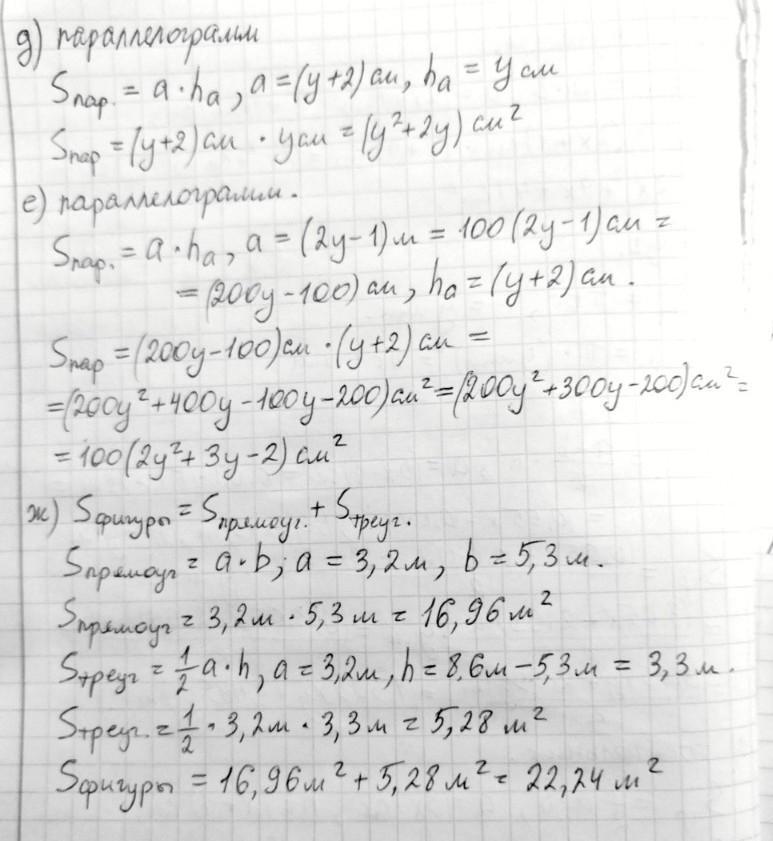 д) параллелограмм
Sпар. = a · hₐ, a = (y+2) см, hₐ = y см
Sпар = (y+2) см · y см = (y²+2y) см²
е) параллелограмм.
Sпар. = a · hₐ, a = (2y−1) м = 100(2y−1) см =
= (200y−100) см, hₐ = (y+2) см.
Sпар = (200y−100) см · (y+2) см =
= (200y²+400y−100y−200) см² = (200y²+300y−200) см² =
= 100(2y²+3y−2) см²
ж) Sфигуры = Sпрямоуг. + Sтреуг.
Sпрямоуг = a · b; a = 3,2 м, b = 5,3 м.
Sпрямоуг = 3,2 м · 5,3 м = 16,96 м²
Sтреуг = 1/2 a · h, a = 3,2 м, h = 8,6 м − 5,3 м = 3,3 м.
Sтреуг. = 1/2 · 3,2 м · 3,3 м = 5,28 м²
Sфигуры = 16,96 м² + 5,28 м² = 22,24 м²